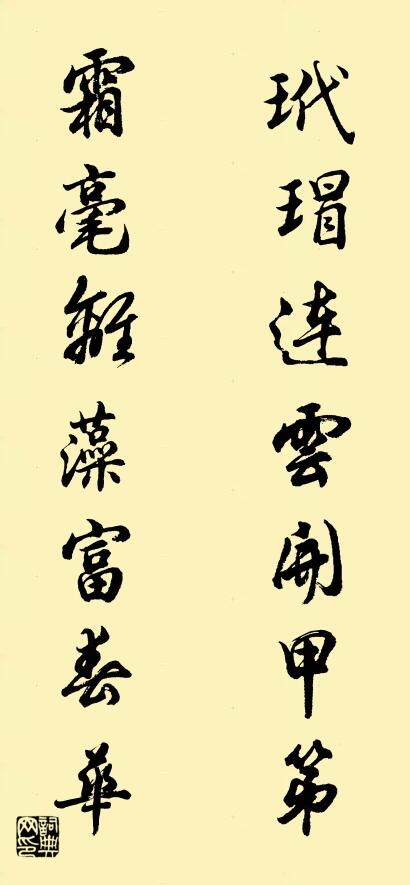 玳瑁連雲開甲第
霜毫藻富春華
詞典
网印